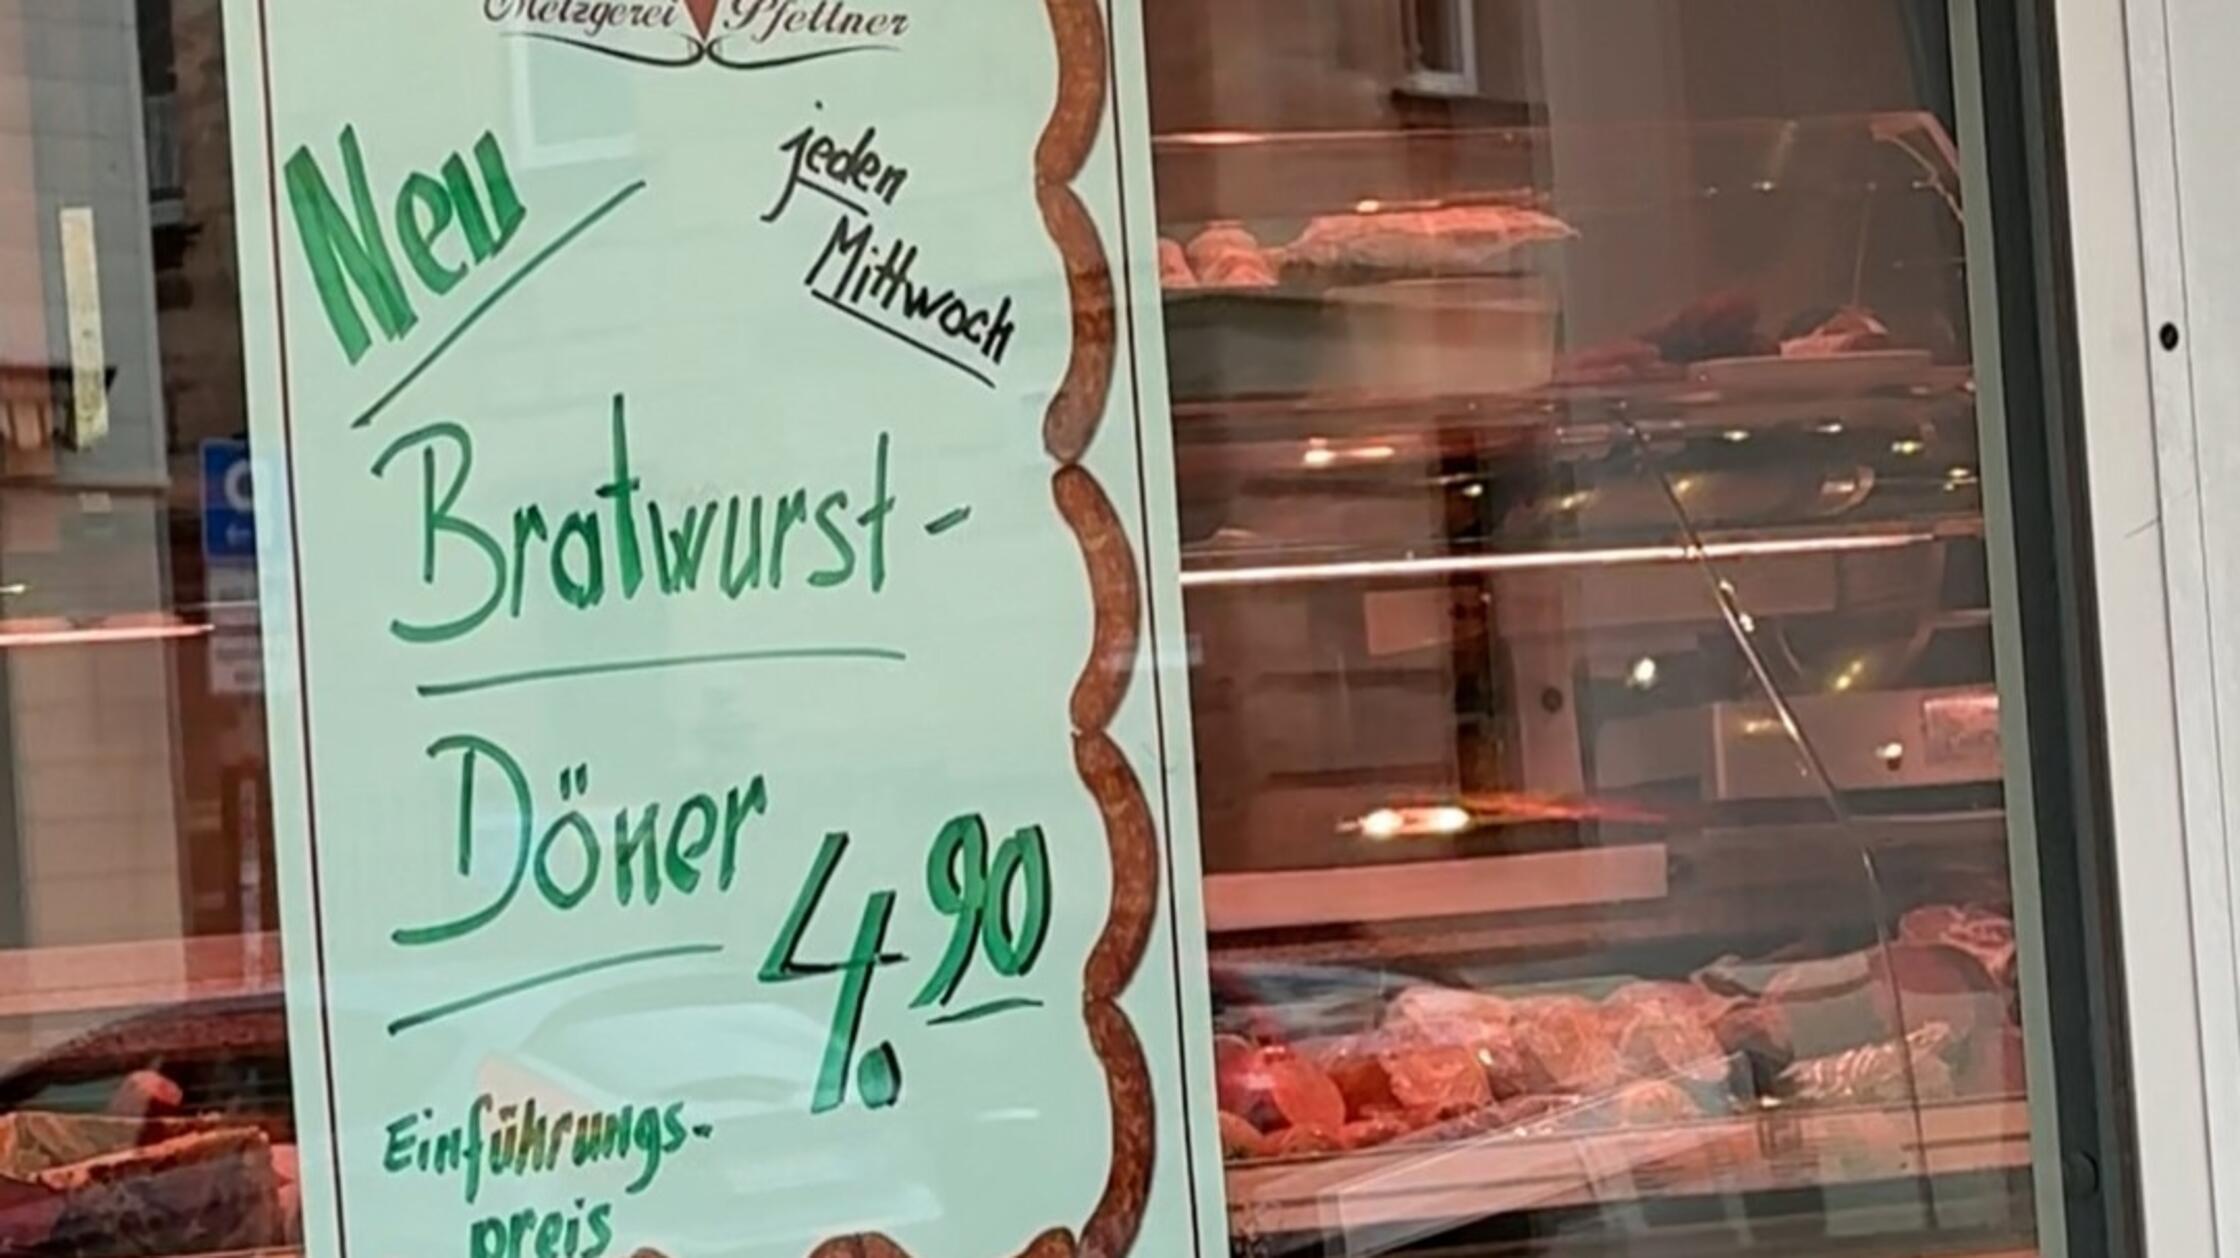 Metzgerei Pfettner
Neu
jeden
Mittwoch
Bratwurst-
Döner
4.90
Einführungs-
preis